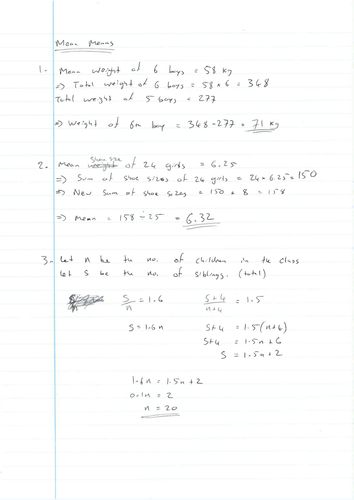 Mean Means
1. Mean weight of 6 boys = 58 kg
⇒ Total weight of 6 boys = 58 × 6 = 348
Total weight of 5 boys = 277
⇒ Weight of 6th boy = 348 - 277 = 71 kg
2. Mean shoe size of 24 girls = 6.25
⇒ Sum of shoe sizes of 24 girls = 24 × 6.25 = 150
⇒ New sum of shoe sizes = 150 + 8 = 158
⇒ Mean = 158 ÷ 25 = 6.32
3. Let n be the no. of children in the class
Let S be the no. of siblings. (total)
S/n = 1.6 S+4/n+4 = 1.5
S = 1.6n S+4 = 1.5(n+4)
S+4 = 1.5n + 6
S = 1.5n + 2
1.6n = 1.5n + 2
0.1n = 2
n = 20